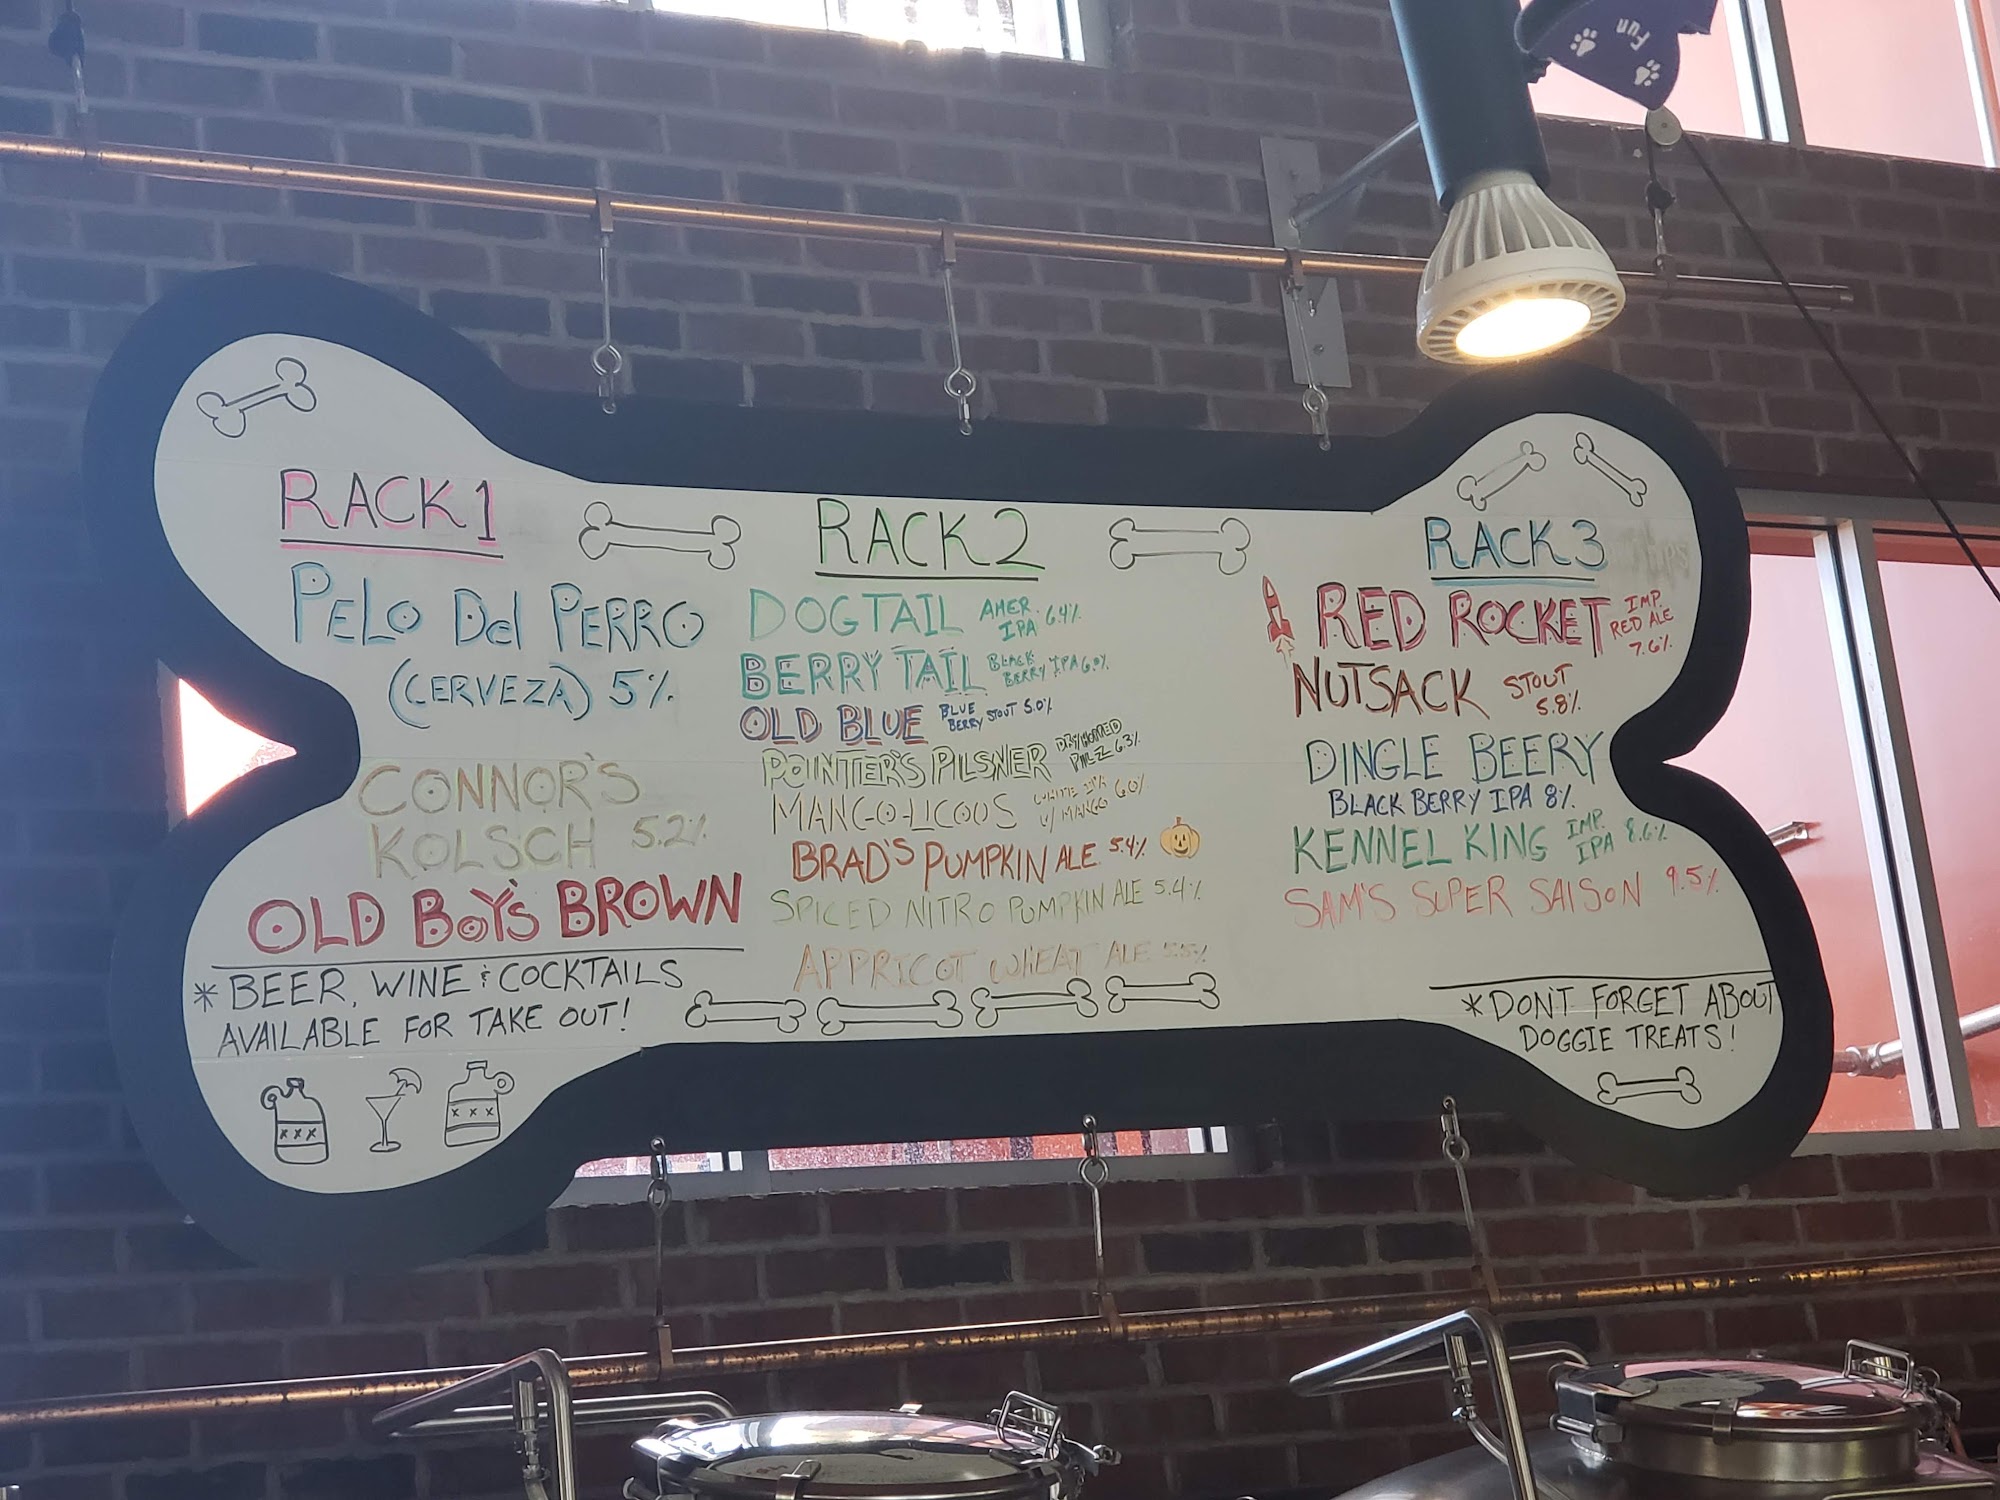 Fun
RACK 1
PELO Del PERRO
(CERVEZA) 5%
CONNOR'S
KOLSCH 5.2%
OLD BOY'S BROWN
* BEER, WINE & COCKTAILS
AVAILABLE FOR TAKE OUT!
XXX
XXX
RACK 2
DOGTAIL AMER. IPA 6.4%
BERRY TAIL BLACK BERRY IPA 6.0%
OLD BLUE BLUE BERRY STOUT 5.0%
POINTER'S PILSNER DRY HOPPED PILZ 6.3%
MANG-O-LICOUS WHITE IPA W/ MANGO 6.0%
BRAD'S PUMPKIN ALE 5.4%
SPICED NITRO PUMPKIN ALE 5.4%
APPRICOT WHEAT ALE 5.5%
RACK 3
RED ROCKET IMP. RED ALE 7.6%
NUTSACK STOUT 5.8%
DINGLE BEERY
BLACK BERRY IPA 8%
KENNEL KING IMP. IPA 8.6%
SAM'S SUPER SAISON 9.5%
* DON'T FORGET ABOUT
DOGGIE TREATS!